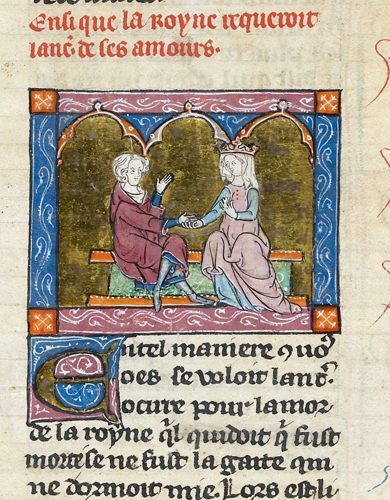 Ensi que la royne requeroit
lanc̄. de ses amours.
En tel maniere 9 uo9
oes se voloit lanc̄.
ocirre pour lamor
de la royne q̄l quidoit q̄ fust
morte se ne fust la garte qui
ne dormoit mie. Lors est li